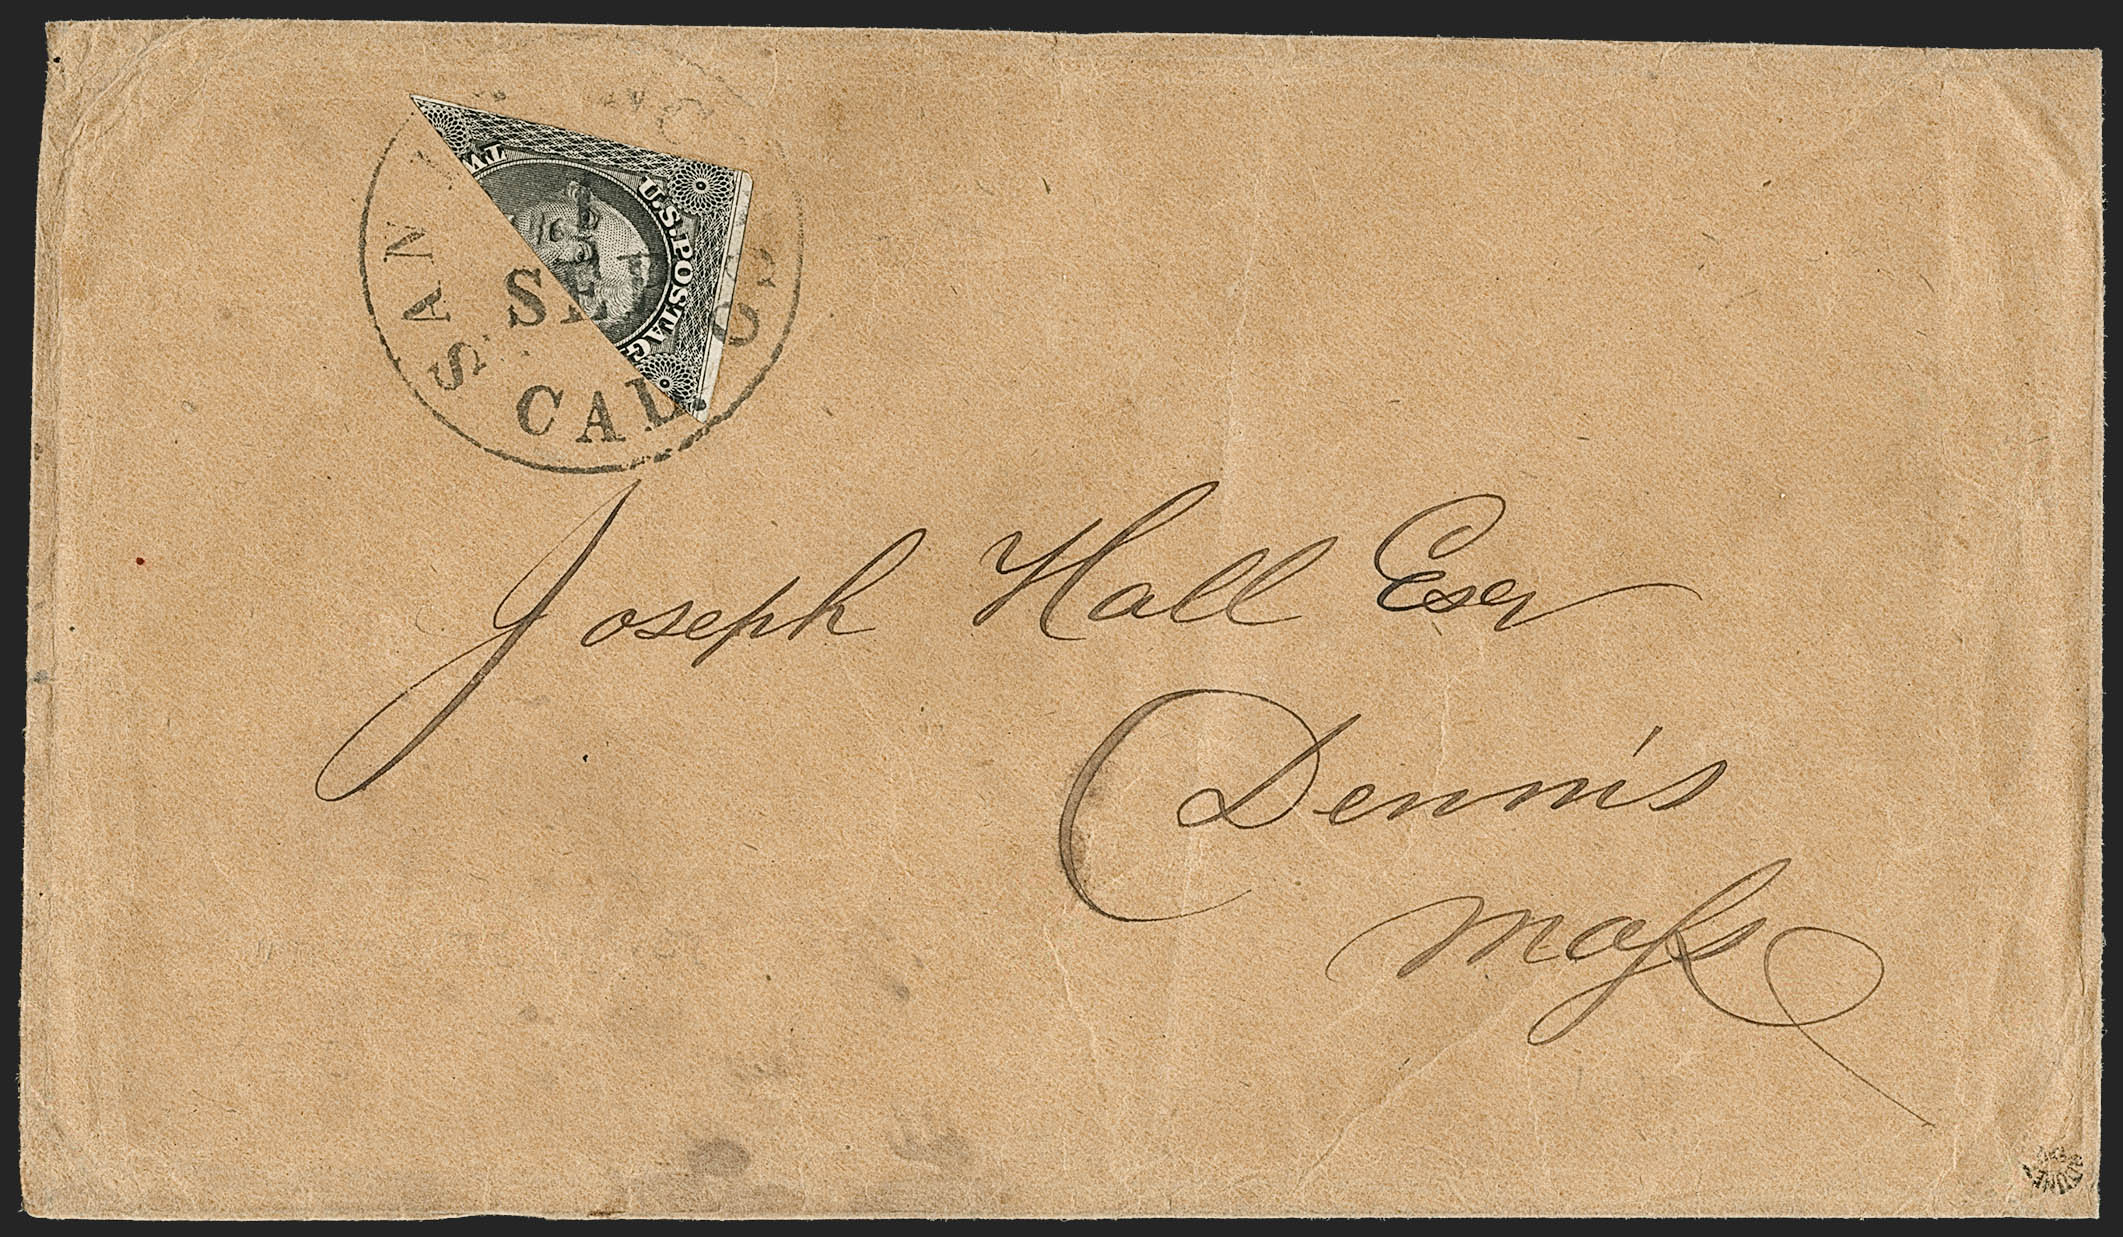 SAN
SE
CAL.
TW
U.S. POSTAG
Joseph Hall Esqr
Dennis
Mass